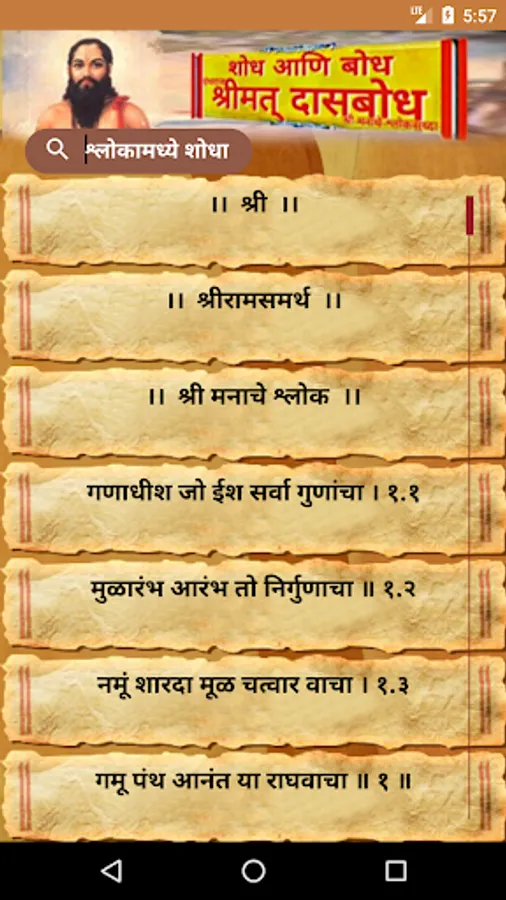 LTE 5:57
शोध आणि बोध
श्रीमत् दासबोध
श्लोकामध्ये शोधा
।। श्री ।।
।। श्रीरामसमर्थ ।।
।। श्री मनाचे श्लोक ।।
गणाधीश जो ईश सर्वा गुणांचा । १.१
मुळारंभ आरंभ तो निर्गुणाचा ॥ १.२
नमूं शारदा मूळ चत्वार वाचा । १.३
गमू पंथ आनंत या राघवाचा ॥ १ ॥